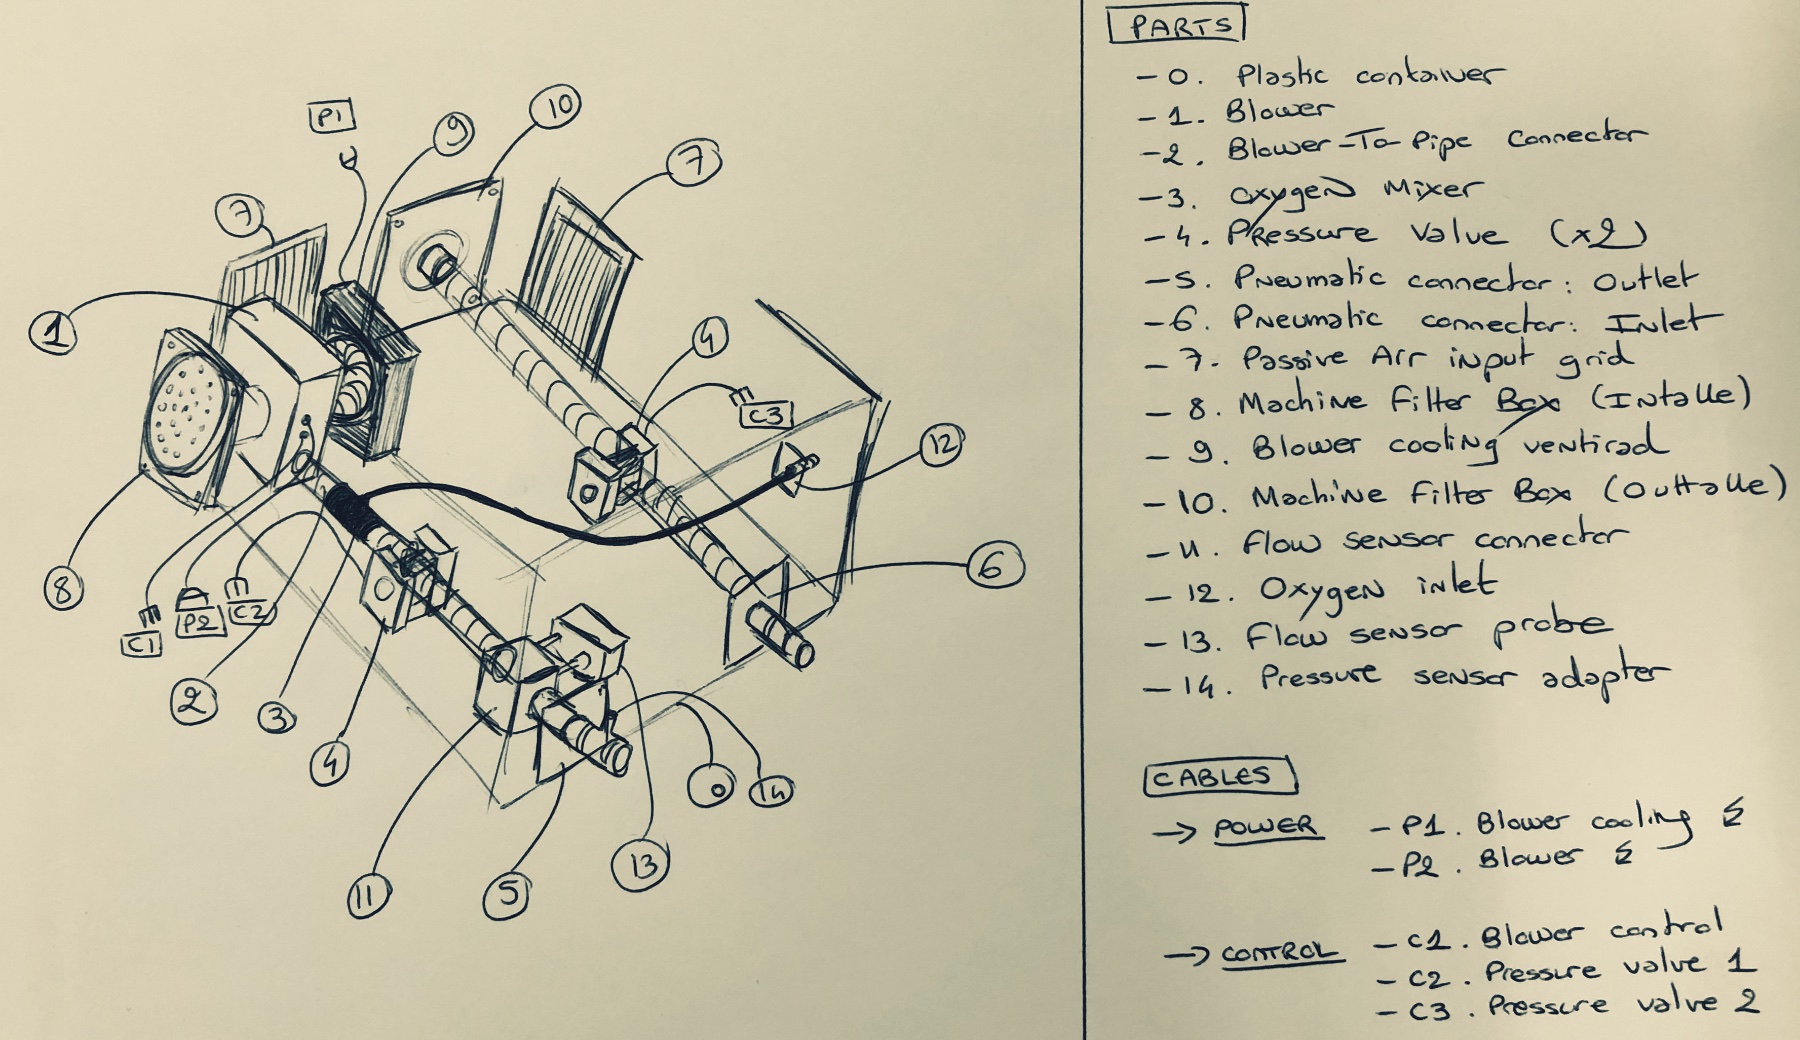 P1
9
10
7
7
1
4
C3
12
8
6
C1
P2
C2
2
3
4
0
14
13
11
5
PARTS
- 0. Plastic container
- 1. Blower
- 2. Blower-To-Pipe connector
- 3. Oxygen Mixer
- 4. Pressure Valve (x2)
- 5. Pneumatic connector: Outlet
- 6. Pneumatic connector: Inlet
- 7. Passive Air input grid
- 8. Machine Filter Box (Intalle)
- 9. Blower cooling ventirad
- 10. Machine Filter Box (Outtalle)
- 11. Flow sensor connector
- 12. Oxygen inlet
- 13. Flow sensor probe
- 14. Pressure sensor adapter
CABLES
→ POWER - P1. Blower cooling
- P2. Blower
→ CONTROL - C1. Blower control
- C2. Pressure valve 1
- C3. Pressure valve 2